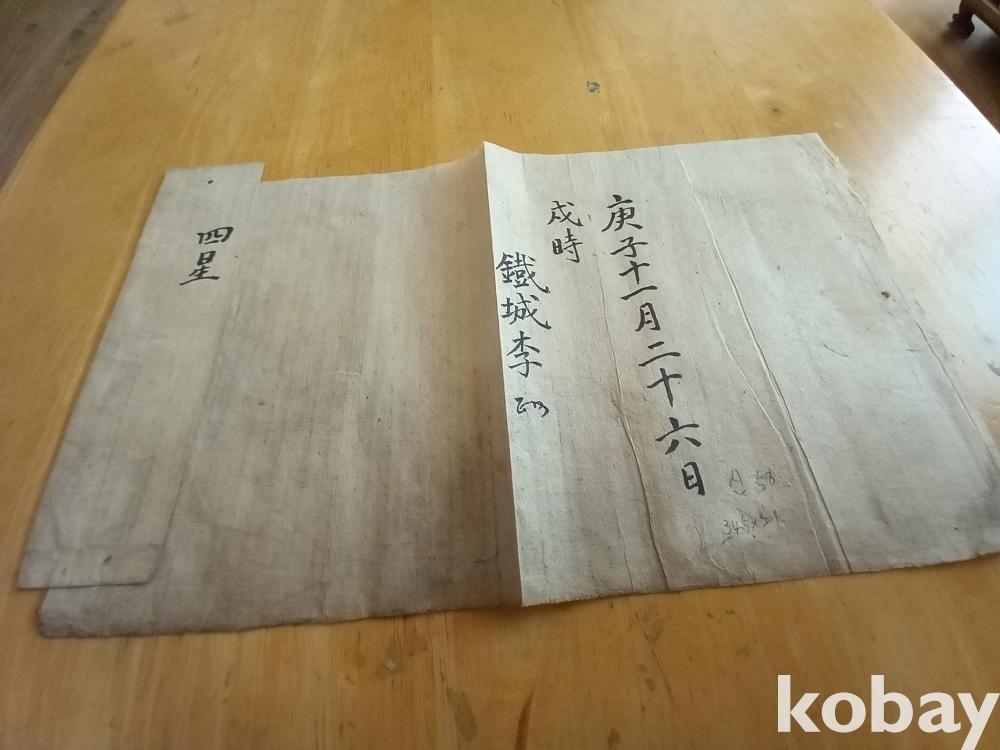 庚子十一月二十六日
戌時
鐵城李
四星
A 58
34.5×51
kobay